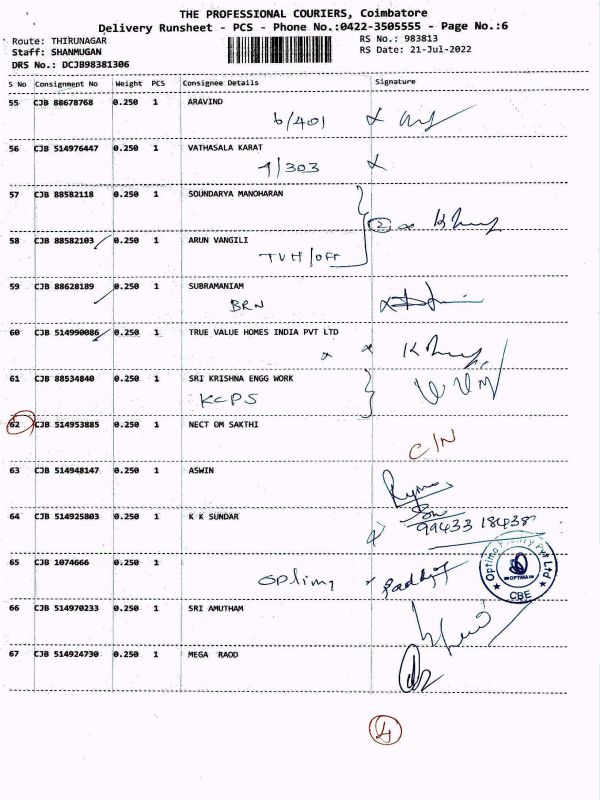 THE PROFESSIONAL COURIERS, Coimbatore
Delivery Runsheet - PCS - Phone No.:0422-3505555 - Page No.:6
Route: THIRUNAGAR
RS No.: 983813
Staff: SHANMUGAN
RS Date: 21-Jul-2022
DRS No.: DCJB98381306
S No Consignment No Weight PCS Consignee Details Signature
55 CJB 88678768 0.250 1 ARAVIND
6/401
56 CJB 514976447 0.250 1 VATHASALA KARAT
9/303
57 CJB 88582118 0.250 1 SOUNDARYA MANOHARAN
58 CJB 88582103 0.250 1 ARUN VANGILI
TVH/OFF
59 CJB 88628189 0.250 1 SUBRAMANIAM
BRN
60 CJB 514990086 0.250 1 TRUE VALUE HOMES INDIA PVT LTD
61 CJB 88534840 0.250 1 SRI KRISHNA ENGG WORK
KCPS
62 CJB 514953885 0.250 1 NECT OM SAKTHI
C/N
63 CJB 514948147 0.250 1 ASWIN
64 CJB 514925803 0.250 1 K K SUNDAR
99433 18438
65 CJB 1074666 0.250 1
Optima
OPTIMA
CBE
66 CJB 514970233 0.250 1 SRI AMUTHAM
67 CJB 514924730 0.250 1 MEGA RAOD
4